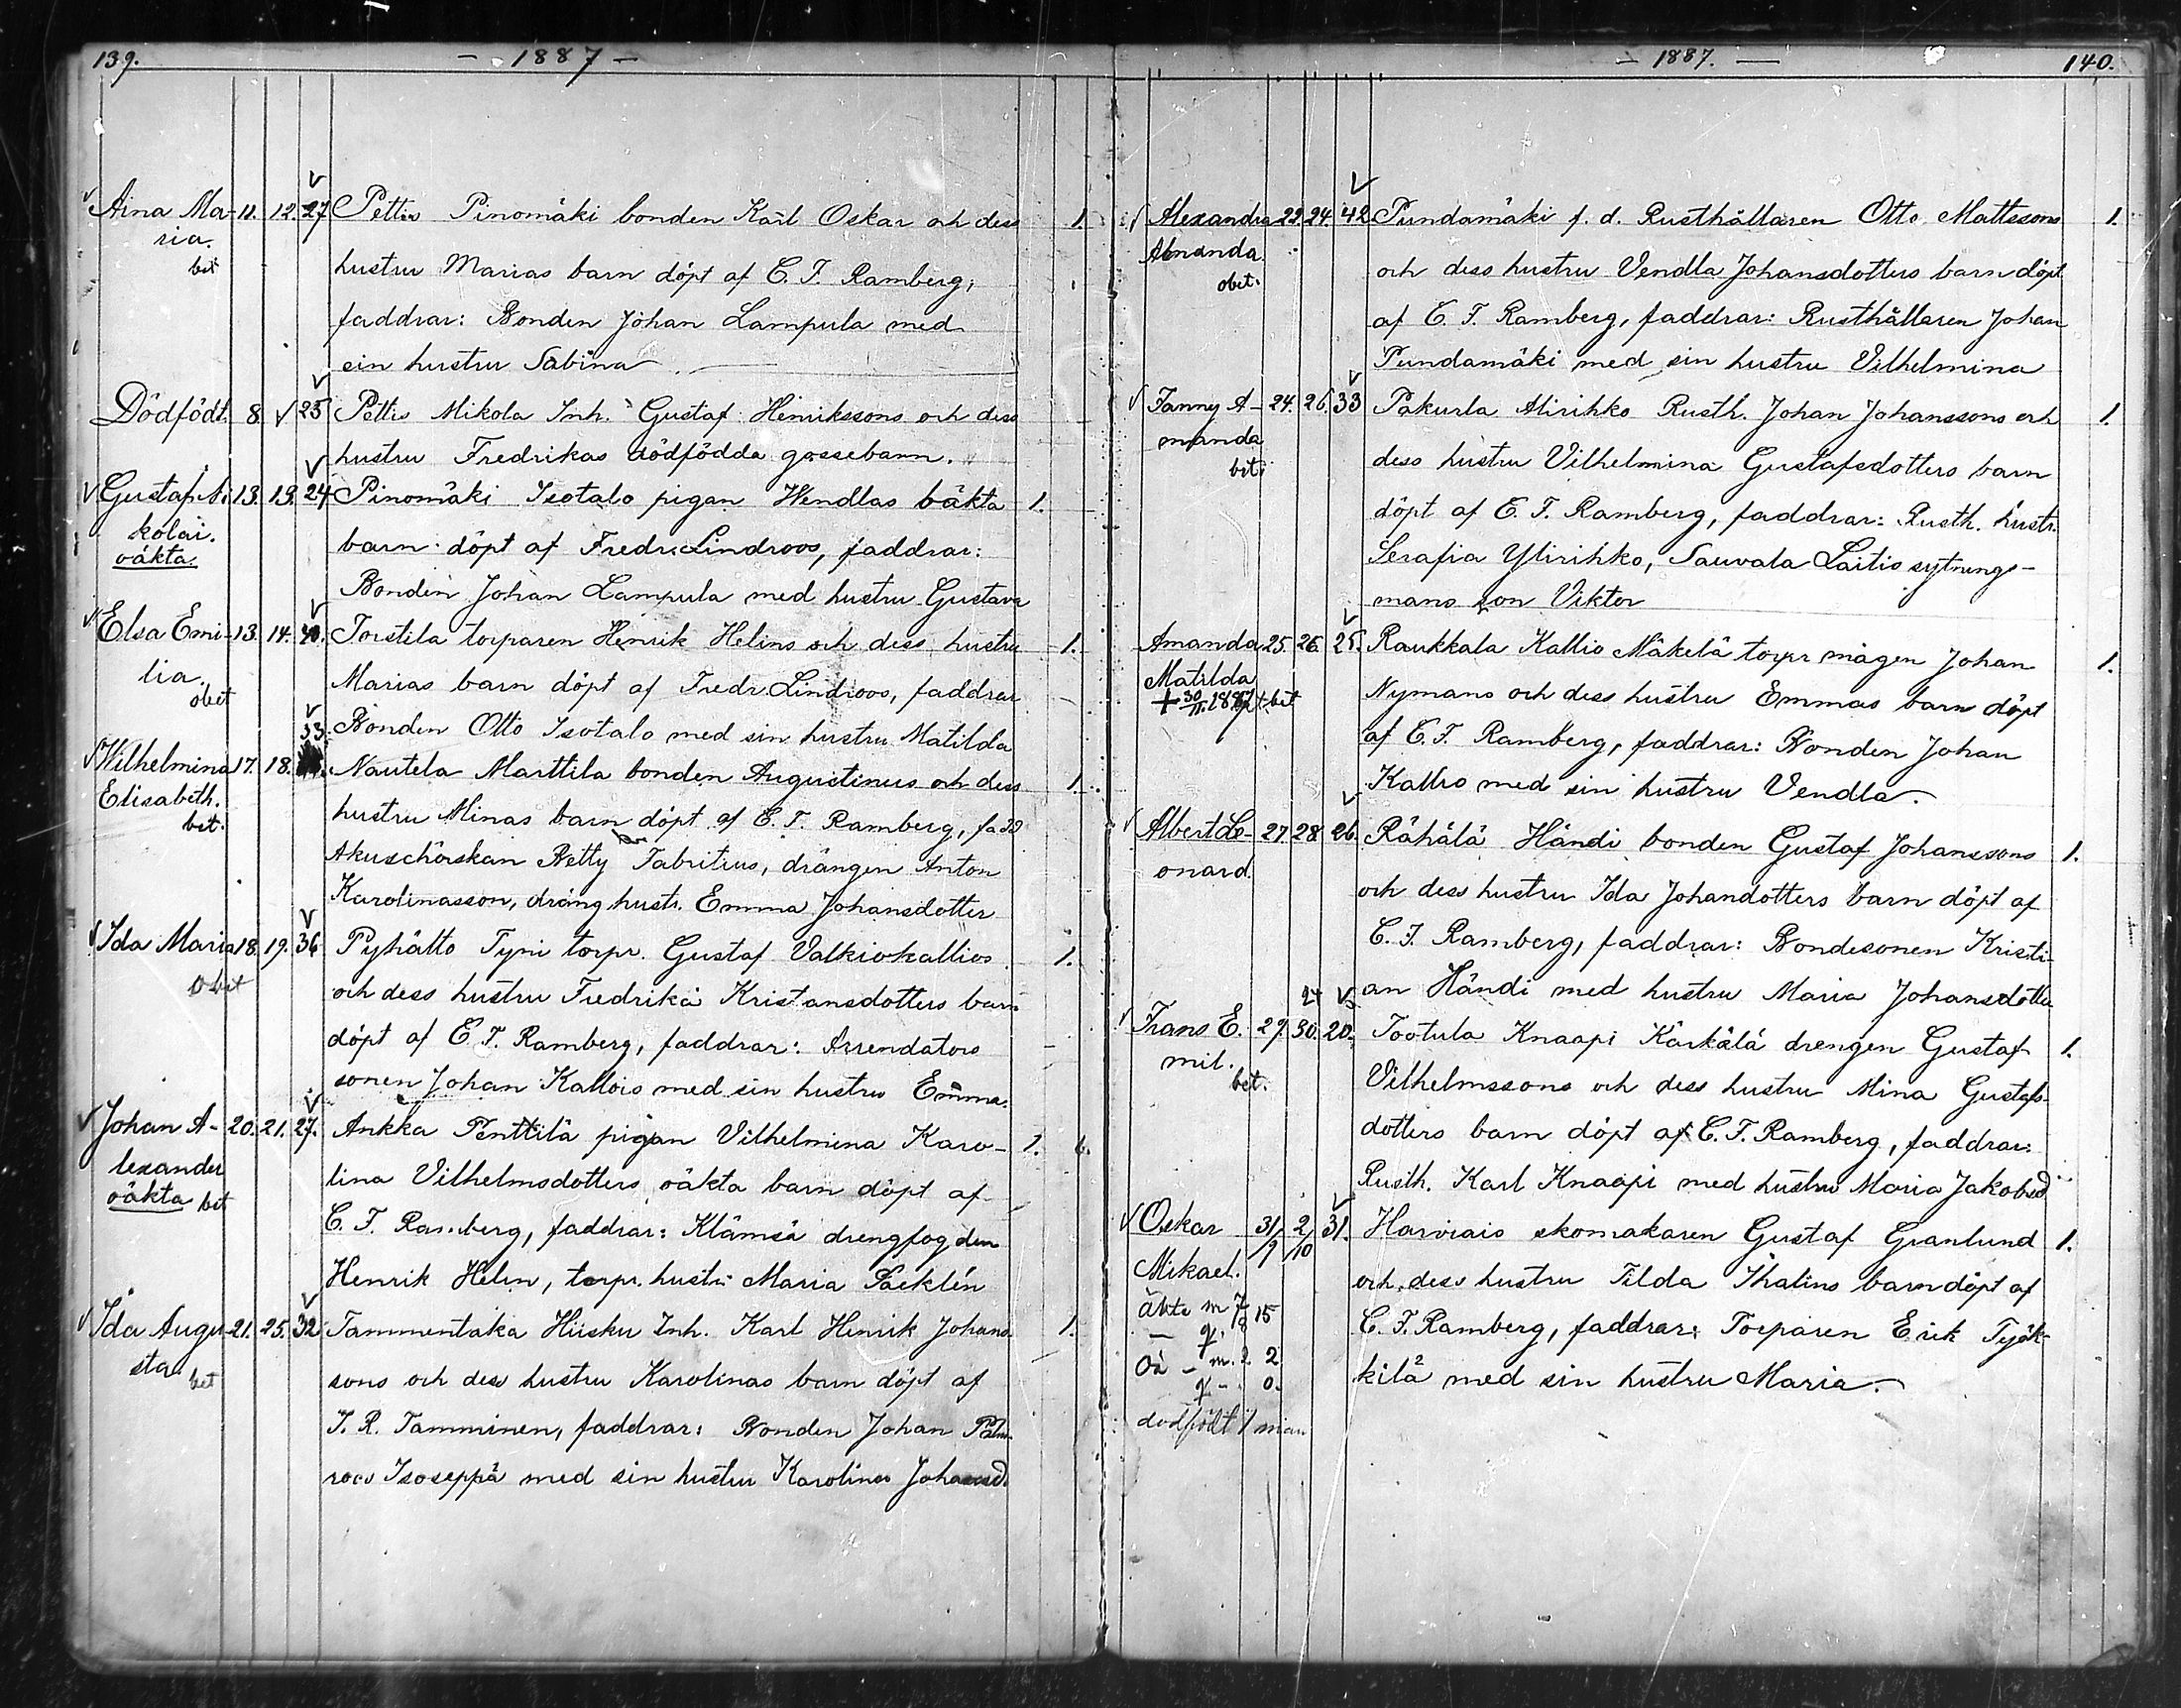 139. - 1887 -
Aina Ma- 11. 12. 27 Pettis Pinomäki bonden Karl Oskar och dess 1.
ria.
bet
hustru Marias barn döpt af C. F. Ramberg,
faddrar: Bonden Johan Lampula med
sin hustru Sabina
Dödfödt. 8. 25 Pettis Mikola Inh. Gustaf Henrikssons och dess
hustru Fredrikas dödfödda gossebarn.
Gustaf Ni- 13. 13. 24 Pinomäki Isotalo pigan Wendlas oäkta 1.
kolai.
oäkta.
barn döpt af Fredr. Lindroos, faddrar:
Bonden Johan Lampula med hustru Gustava
Elsa Emi- 13. 14. 40. Torstila torparen Henrik Helins och dess hustru 1.
lia.
obet
Marias barn döpt af Fredr. Lindroos, faddrar
Bonden Otto Isotalo med sin hustru Matilda
33.
Wilhelmina 17. 18. Nautela Marttila bonden Augustinus och dess 1.
Elisabeth.
bet.
hustru Minas barn döpt af C. F. Ramberg, fadd
Akuschörskan Betty Fabritius, drängen Anton
Karolinasson, dräng hustr. Emma Johansdotter
Ida Maria 18. 19. 36 Pyhältö Tyni torpr. Gustaf Valkiokallios 1.
obet
och dess hustru Fredrika Kristansdotters barn
döpt af C. F. Ramberg, faddrar: Arrendators
sonen Johan Kallois med sin hustru Emma.
Johan A- 20. 21. 27. Ankka Penttilä pigan Vilhelmina Karo- 1.
lexander
oäkta bet
lina Vilhelmsdotters oäkta barn döpt af
C. F. Ramberg, faddrar: Klämsä drengfogden
Henrik Helin, torpr. hustr. Maria Säcklén
Ida Augu- 21. 25. 32 Tammentaka Hiisku Inh. Karl Henrik Johans- 1.
sta
bet
sons och dess hustru Karolinas barn döpt af
J. R. Tamminen, faddrar: Bonden Johan Palm-
roos Isoseppä med sin hustru Karolina Johansd.
- 1887. - 140.
Alexandra 22. 24. 42 Pundamäki f. d. Rusthållaren Otto Mattssons 1.
Amanda
obet.
och dess hustru Vendla Johansdotters barn döpt
af C. F. Ramberg, faddrar: Rusthållaren Johan
Pundamäki med sin hustru Vilhelmina
Fanny A- 24. 26. 33 Pakurla Alirihko Rusth. Johan Johanssons och 1.
manda
bet.
dess hustru Vilhelmina Gustafsdotters barn
döpt af C. F. Ramberg, faddrar: Rusth. hustr.
Serafia Ylirihko, Sauvala Laitio sytnings-
mans son Viktor
Amanda 25. 26. 25. Raukkala Kallio Mäkelä torpr mågen Johan 1.
Matilda
+ 30/11 1887 bet
Nymans och dess hustru Emmas barn döpt
af C. F. Ramberg, faddrar: Bonden Johan
Kallio med sin hustru Vendla.
Albert Le- 27. 28. 26. Rähälä Händi bonden Gustaf Johanssons 1.
onard.
och dess hustru Ida Johandotters barn döpt af
C. F. Ramberg, faddrar: Bondesonen Kristi-
an Händi med hustru Maria Johansdotter
24
Frans E. 29. 30. 20. Tootula Knaapi Kärkälä drengen Gustaf 1.
mil.
bet.
Vilhelmssons och dess hustru Mina Gustafs-
dotters barn döpt af C. F. Ramberg, faddrar:
Rusth. Karl Knaapi med hustru Maria Jakobsd.
Oskar 31/9 2/10 31. Harviais skomakaren Gustaf Granlund 1.
Mikael.
och dess hustru Tilda Thalins barn döpt af
äkta m 7 15
C. F. Ramberg, faddrar: Torparen Erik Tyäk-
- q. 8
Oä - m. 2 2
kilä med sin hustru Maria.
q - 0.
dödfödt 1 man